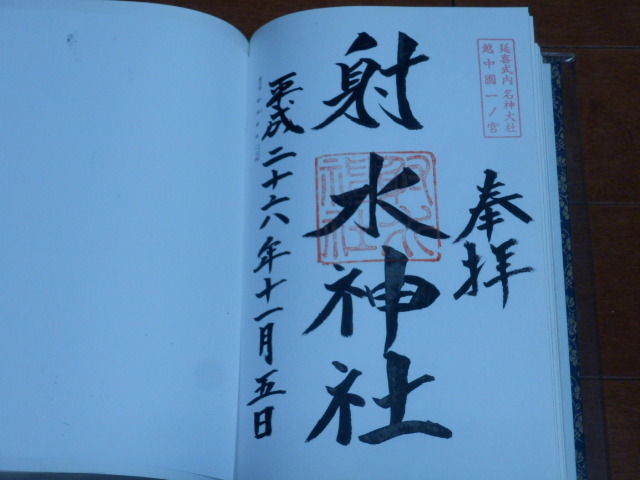 延喜式内 名神大社
越中國一ノ宮
奉拝
射水神社
平成二十六年十一月五日